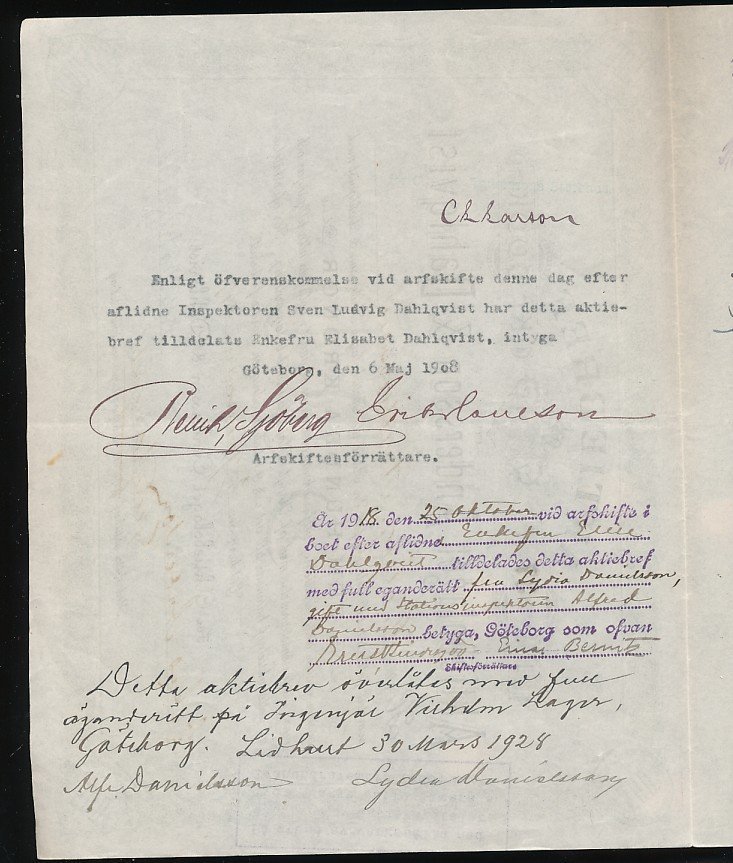 C L Larson
Enligt öfverenskommelse vid arfskifte denne dag efter
aflidne Inspektoren Sven Ludvig Dahlqvist har detta aktie-
bref tilldelats Enkefru Elisabet Dahlqvist, intyga
Göteborg, den 6 Maj 1908
Sjöberg
Arfskiftesförrättare.
År 1918. den 25 Oktober vid arfskifte i
boet efter aflidne Enkefru Elise
Dahlqvist tilldelades detta aktiebref
med full eganderätt fru Lydia Danielsson,
gift med Stationsinspektoren Alfred
Danielsson betyga, Göteborg som ofvan
Einar Berntz
Skiftesförrättare
Detta aktiebrev överlåtes med full
äganderätt på Ingenjör Vilhelm Lager,
Göteborg. Lidhult 30 Mars 1928
Alfr Danielsson Lydia Danielsson